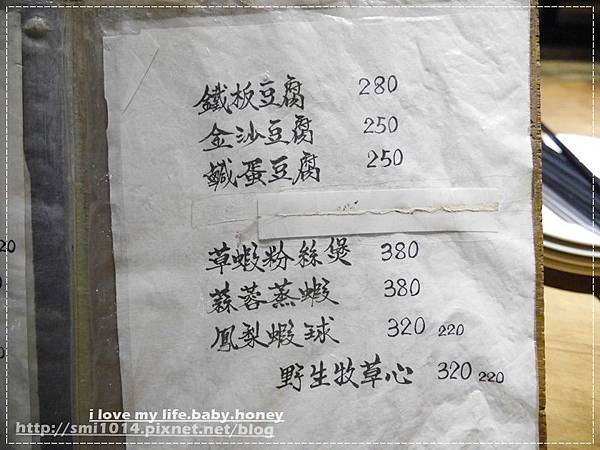 鐵板豆腐 280
金沙豆腐 250
鹹蛋豆腐 250
草蝦粉絲煲 380
蒜蓉蒸蝦 380
鳳梨蝦球 320 220
野生牧草心 320 220
20
i love my life.baby.honey
http://smi1014.pixnet.net/blog